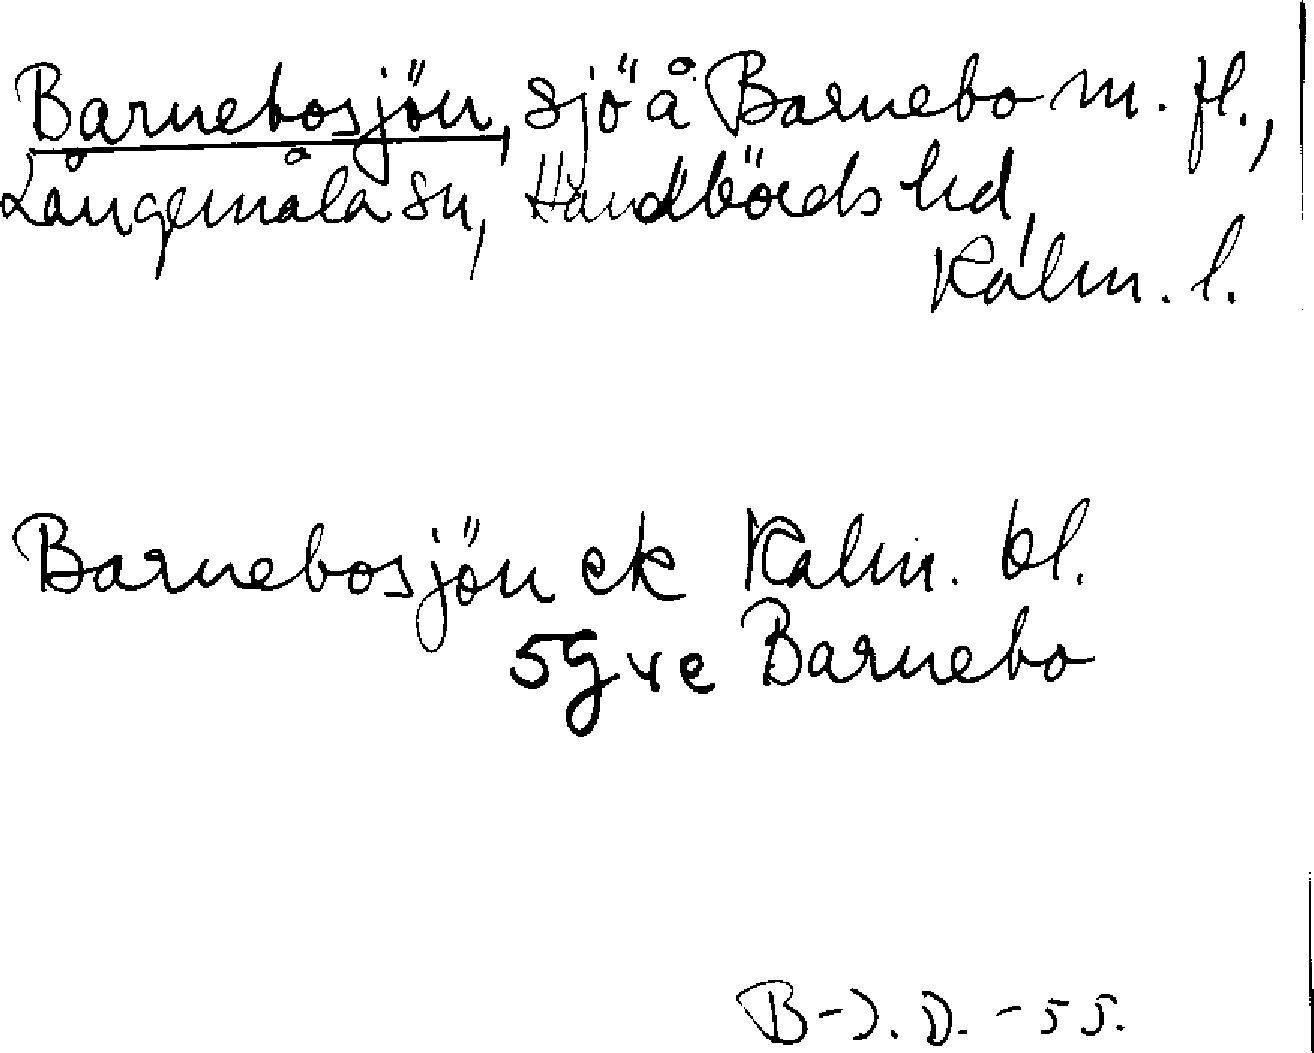 Barnebosjön, sjö å Barnebo m. fl.,
Långemåla sn, Handbörds hd,
Kalm. l.
Barnebosjön ek Kalm. bl.
5g ve Barnebo
B-J. D. -55.